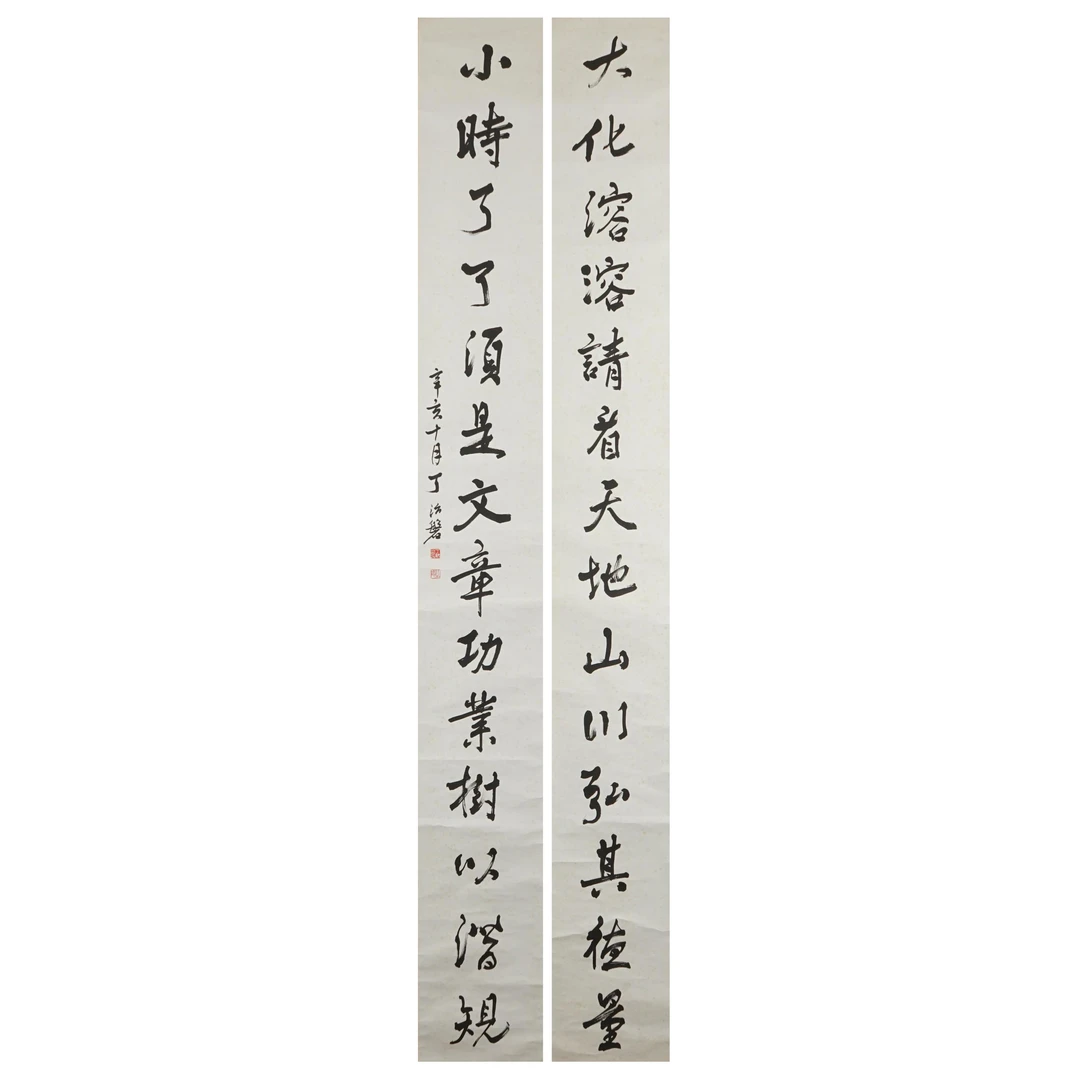 大化溶溶請看天地山川弘其德量
小時了了須是文章功業樹以潛規
辛亥十月丁治磐